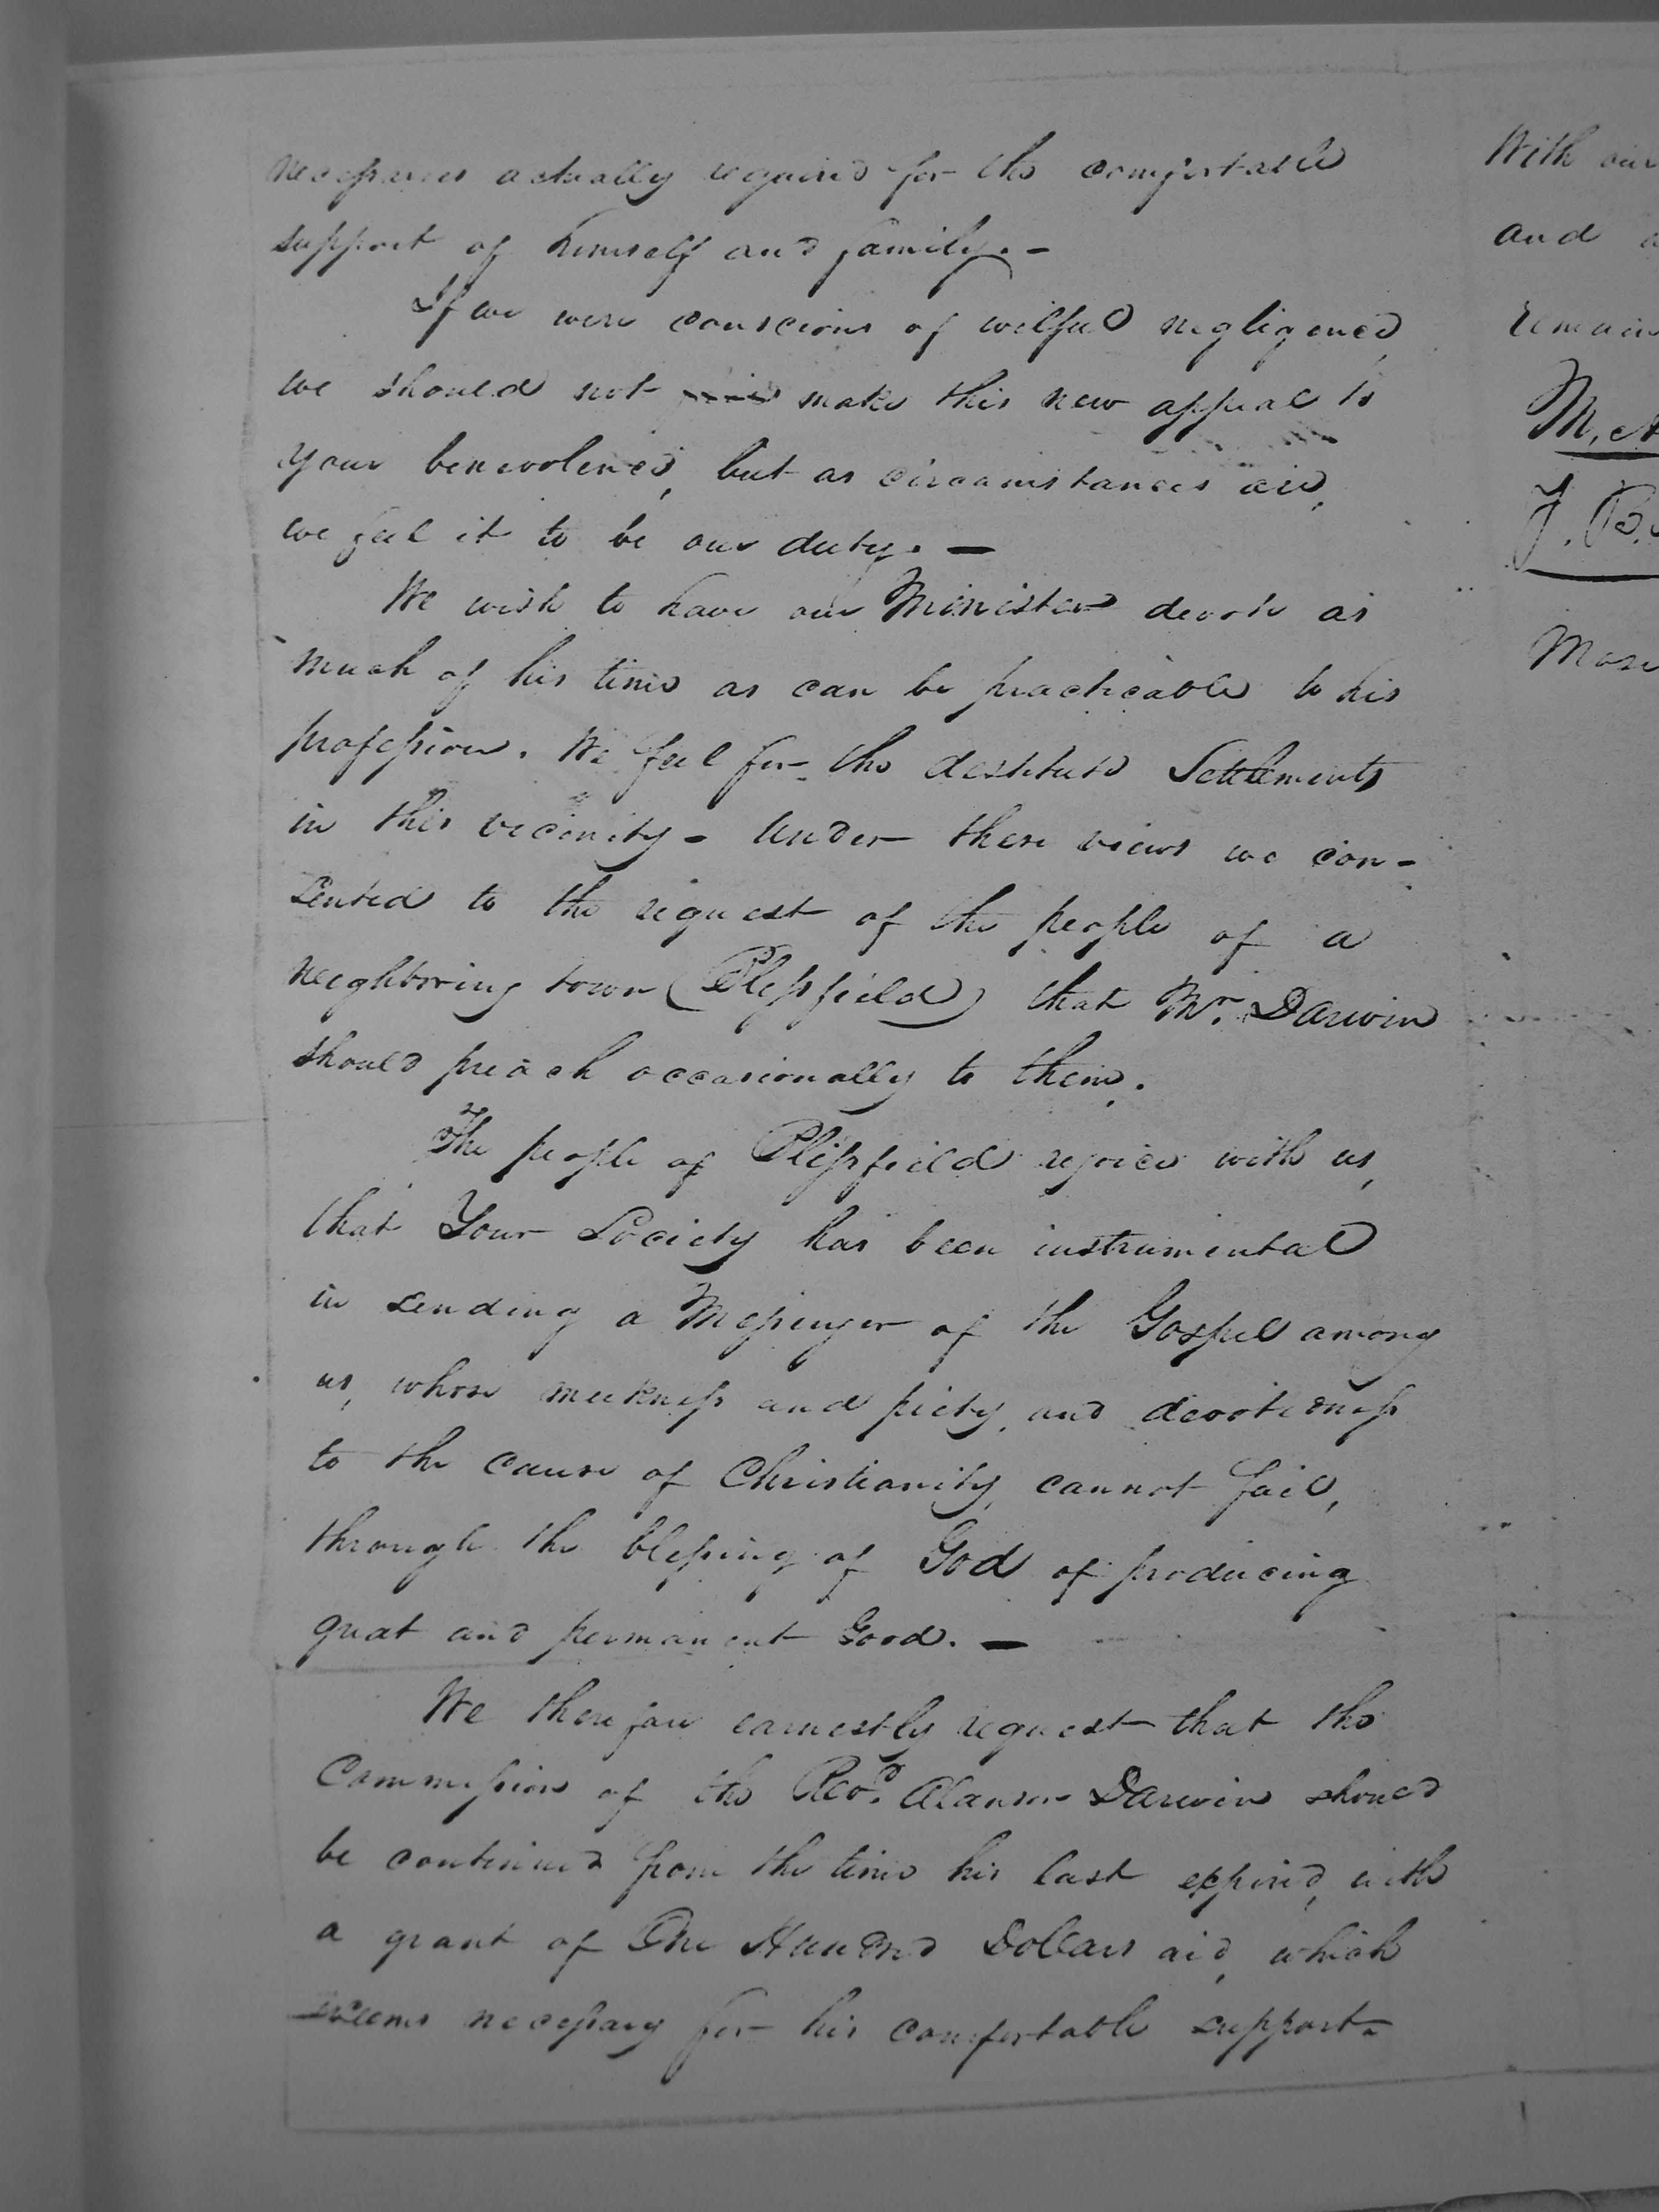 necessaries actually required for the comfortable
support of himself and family. -
If we were conscious of wilful negligence,
we should not make this new appeal to
your benevolence, but as circumstances are,
we feel it to be our duty. —
We wish to have our Minister devote as
much of his time as can be practicable to his
profession. We feel for the destitute Settlements
in this vicinity - Under these views we con-
sented to the request of the people of a
neighboring town (Blissfield) that Mr. Darwin
should preach occasionally to them.
The people of Blissfield rejoice with us,
that Your Society has been instrumental
in sending a Messenger of the Gospel among
us, whose meekness and piety, and devotedness
to the cause of Christianity, cannot fail,
through the blessing of God of producing
great and permanent Good. —
We therefore earnestly request that the
Commission of the Revd. Alanson Darwin should
be continued from the time his last expired, with
a grant of One Hundred Dollars aid, which
seems necessary for his comfortable support-
With our
and
remain
M. A
J. B.